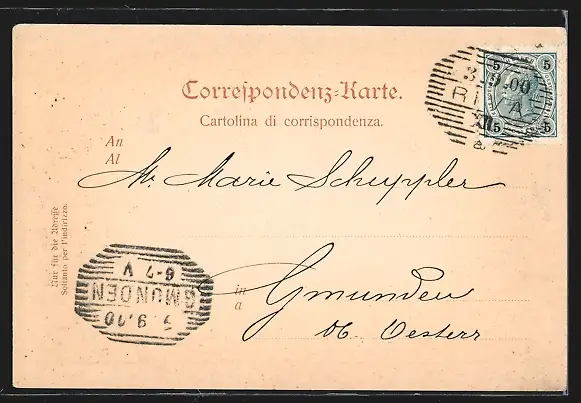 Correspondenz-Karte.
Cartolina di corrispondenza.
An
Al
Marie Schuppler
in
a
Gmunden
Ob. Oesterr
Nur für die Adresse
Soltanto per l'indirizzo.
5 5
5 5
3.9.00
RIVA
a
GMUNDEN
6-7 V
9.00